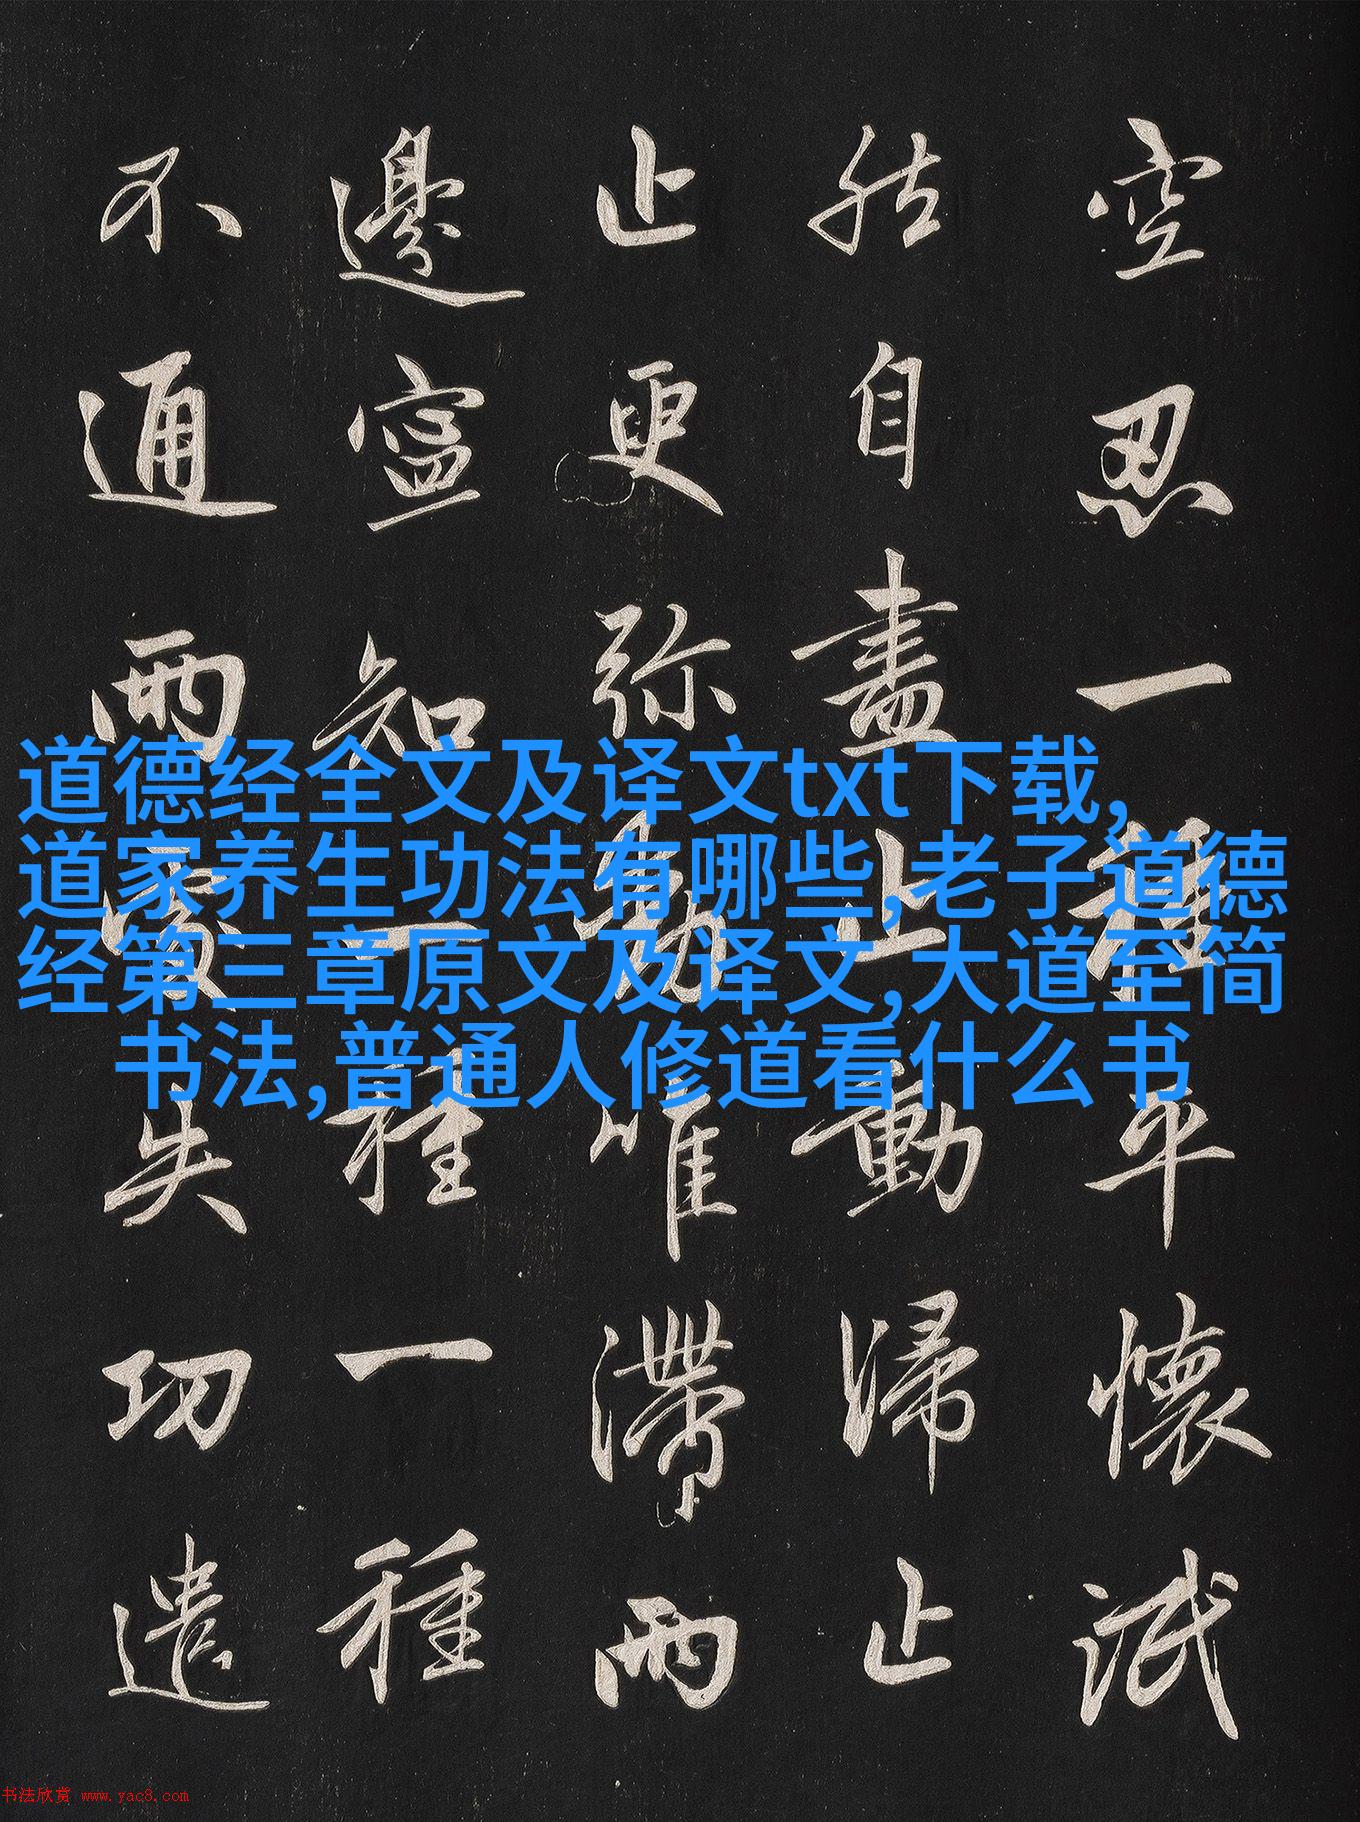 空忍一種平懷泯
然自盡止動歸止
止更弥動唯滯兩
邊寍知一種一種
不通兩處失功遣
道德经全文及译文txt下载,
道家养生功法有哪些,老子道德
经第三章原文及译文,大道至简
书法,普通人修道看什么书
书法欣赏 www.yac8.com